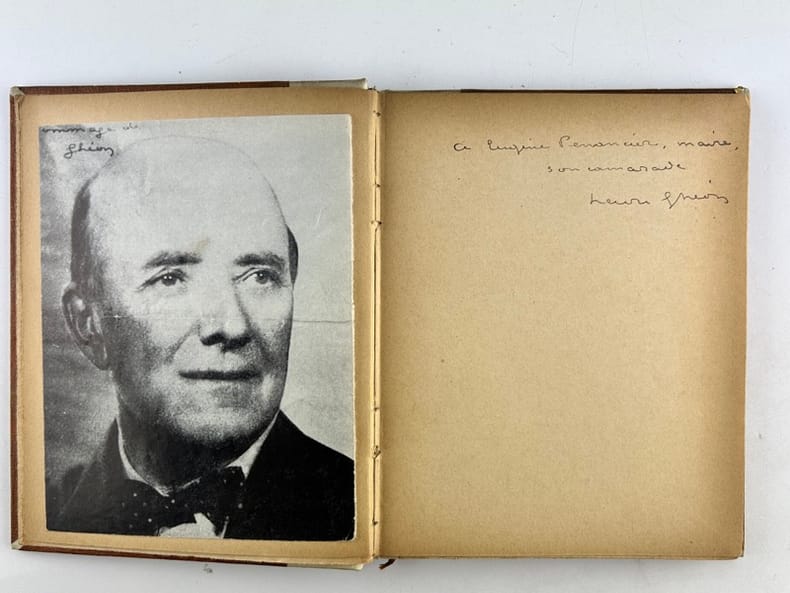 ommage de
Ghéon
a Eugène Penancier, maire,
son camarade
Henri Ghéon